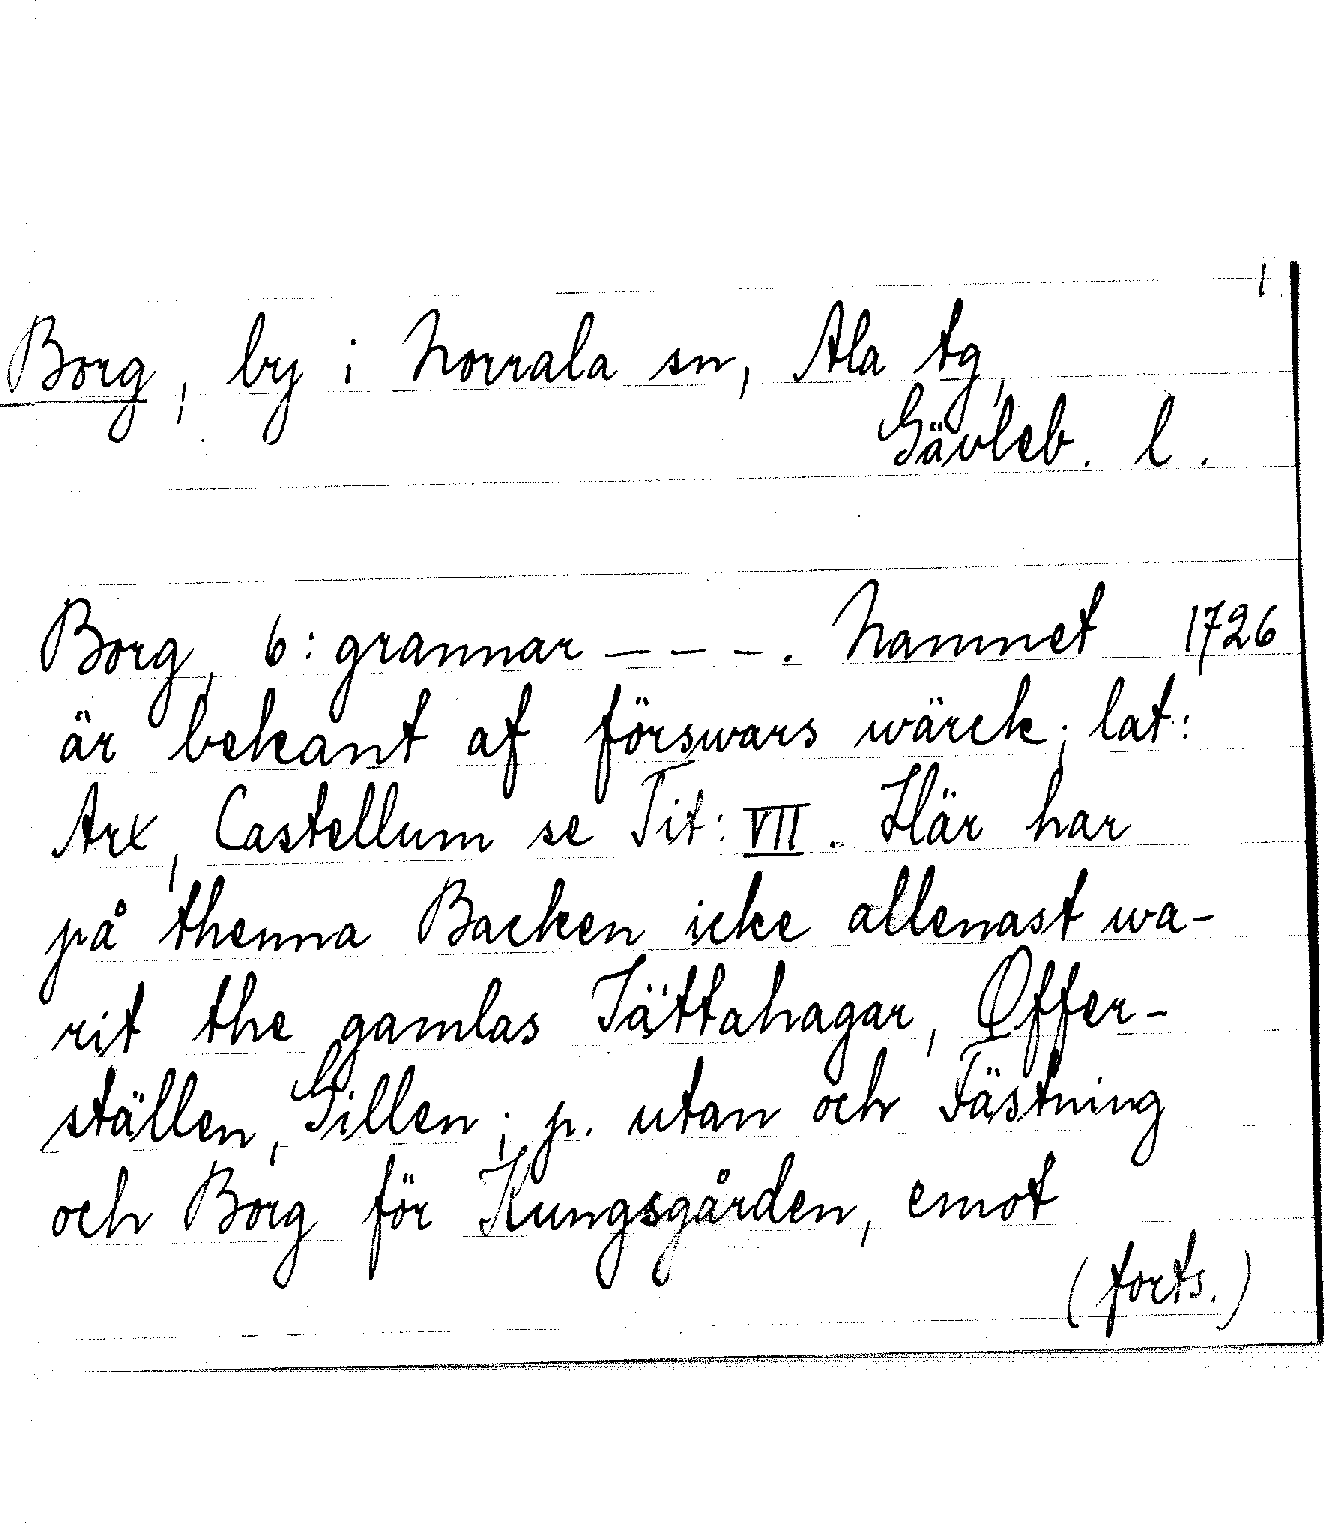 1
Borg, by i Norrala sn, Ala tg,
Gävleb. l.
Borg, 6: grannar – – –. Namnet 1726
är bekant af förswars wärck; lat:
Arx, Castellum se Tit: VII. Här har
på thenna Backen icke allenast wa-
rit the gamlas Tättahagar, Offer-
ställen, Gillen; p. utan och Fästning
och Borg för Kungsgården, emot
(forts.)